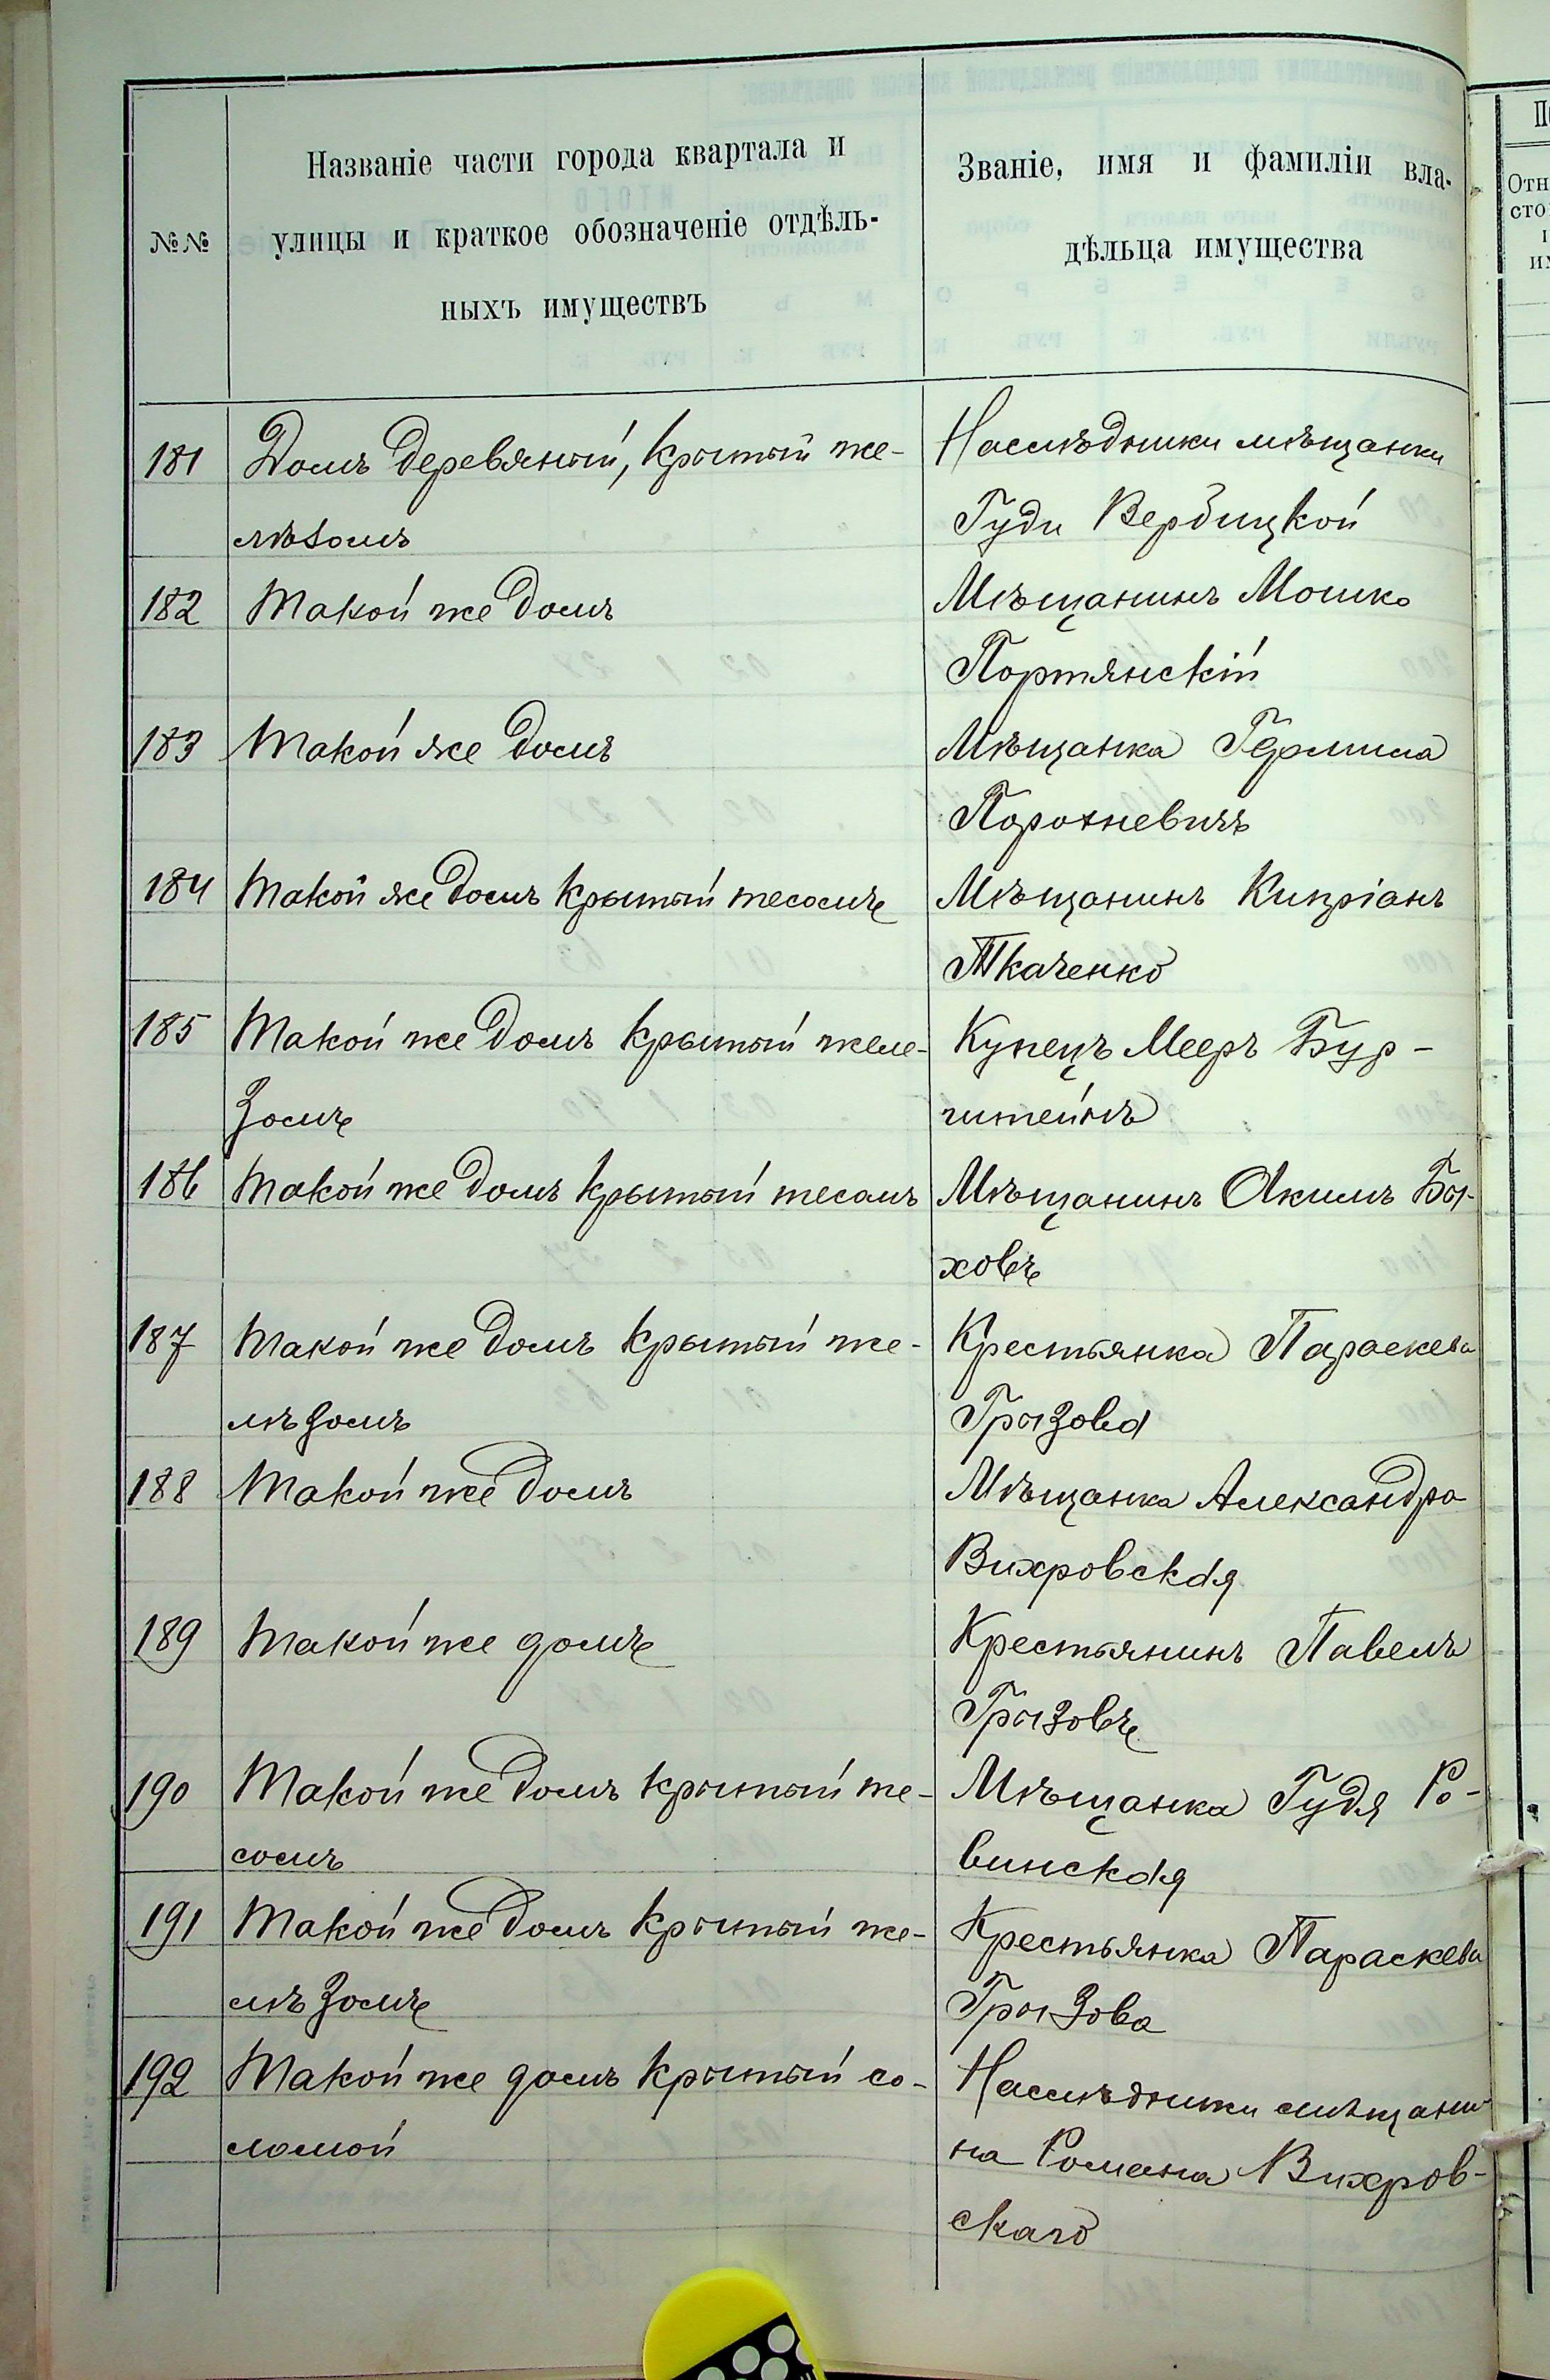 №№
Названіе части города квартала и
улицы и краткое обозначеніе отдѣль-
ныхъ имуществъ
Званіе, имя и фамиліи вла-
дѣльца имущества
181 Домъ деревяный, крытый же- Наслѣдники мѣщанки
лѣзомъ Гуди Вербицкой
182 Такой же домъ Мѣщанинъ Мошко
Портянскій
183 Такой же домъ Мѣщанка
184 Такой же домъ крытый тесомъ Мѣщанинъ Кипріанъ
Ткаченко
185 Такой же домъ крытый желе- Купецъ Мееръ Бур-
зомъ штейнъ
186 Такой же домъ крытый тесомъ Мѣщанинъ Акимъ Бы-
ховъ
187 Такой же домъ крытый же- Крестьянка Параскева
лѣзомъ Грызова
188 Такой же домъ Мѣщанка Александра
Вихровская
189 Такой же домъ Крестьянинъ Павелъ
Грызовъ
190 Такой же домъ крытый те- Мѣщанка Гудя Ро-
сомъ винская
191 Такой же домъ крытый же- Крестьянка Параскева
лѣзомъ Грызова
192 Такой же домъ крытый со- Наслѣдники мѣщани-
ломой на Романа Вихров-
скаго